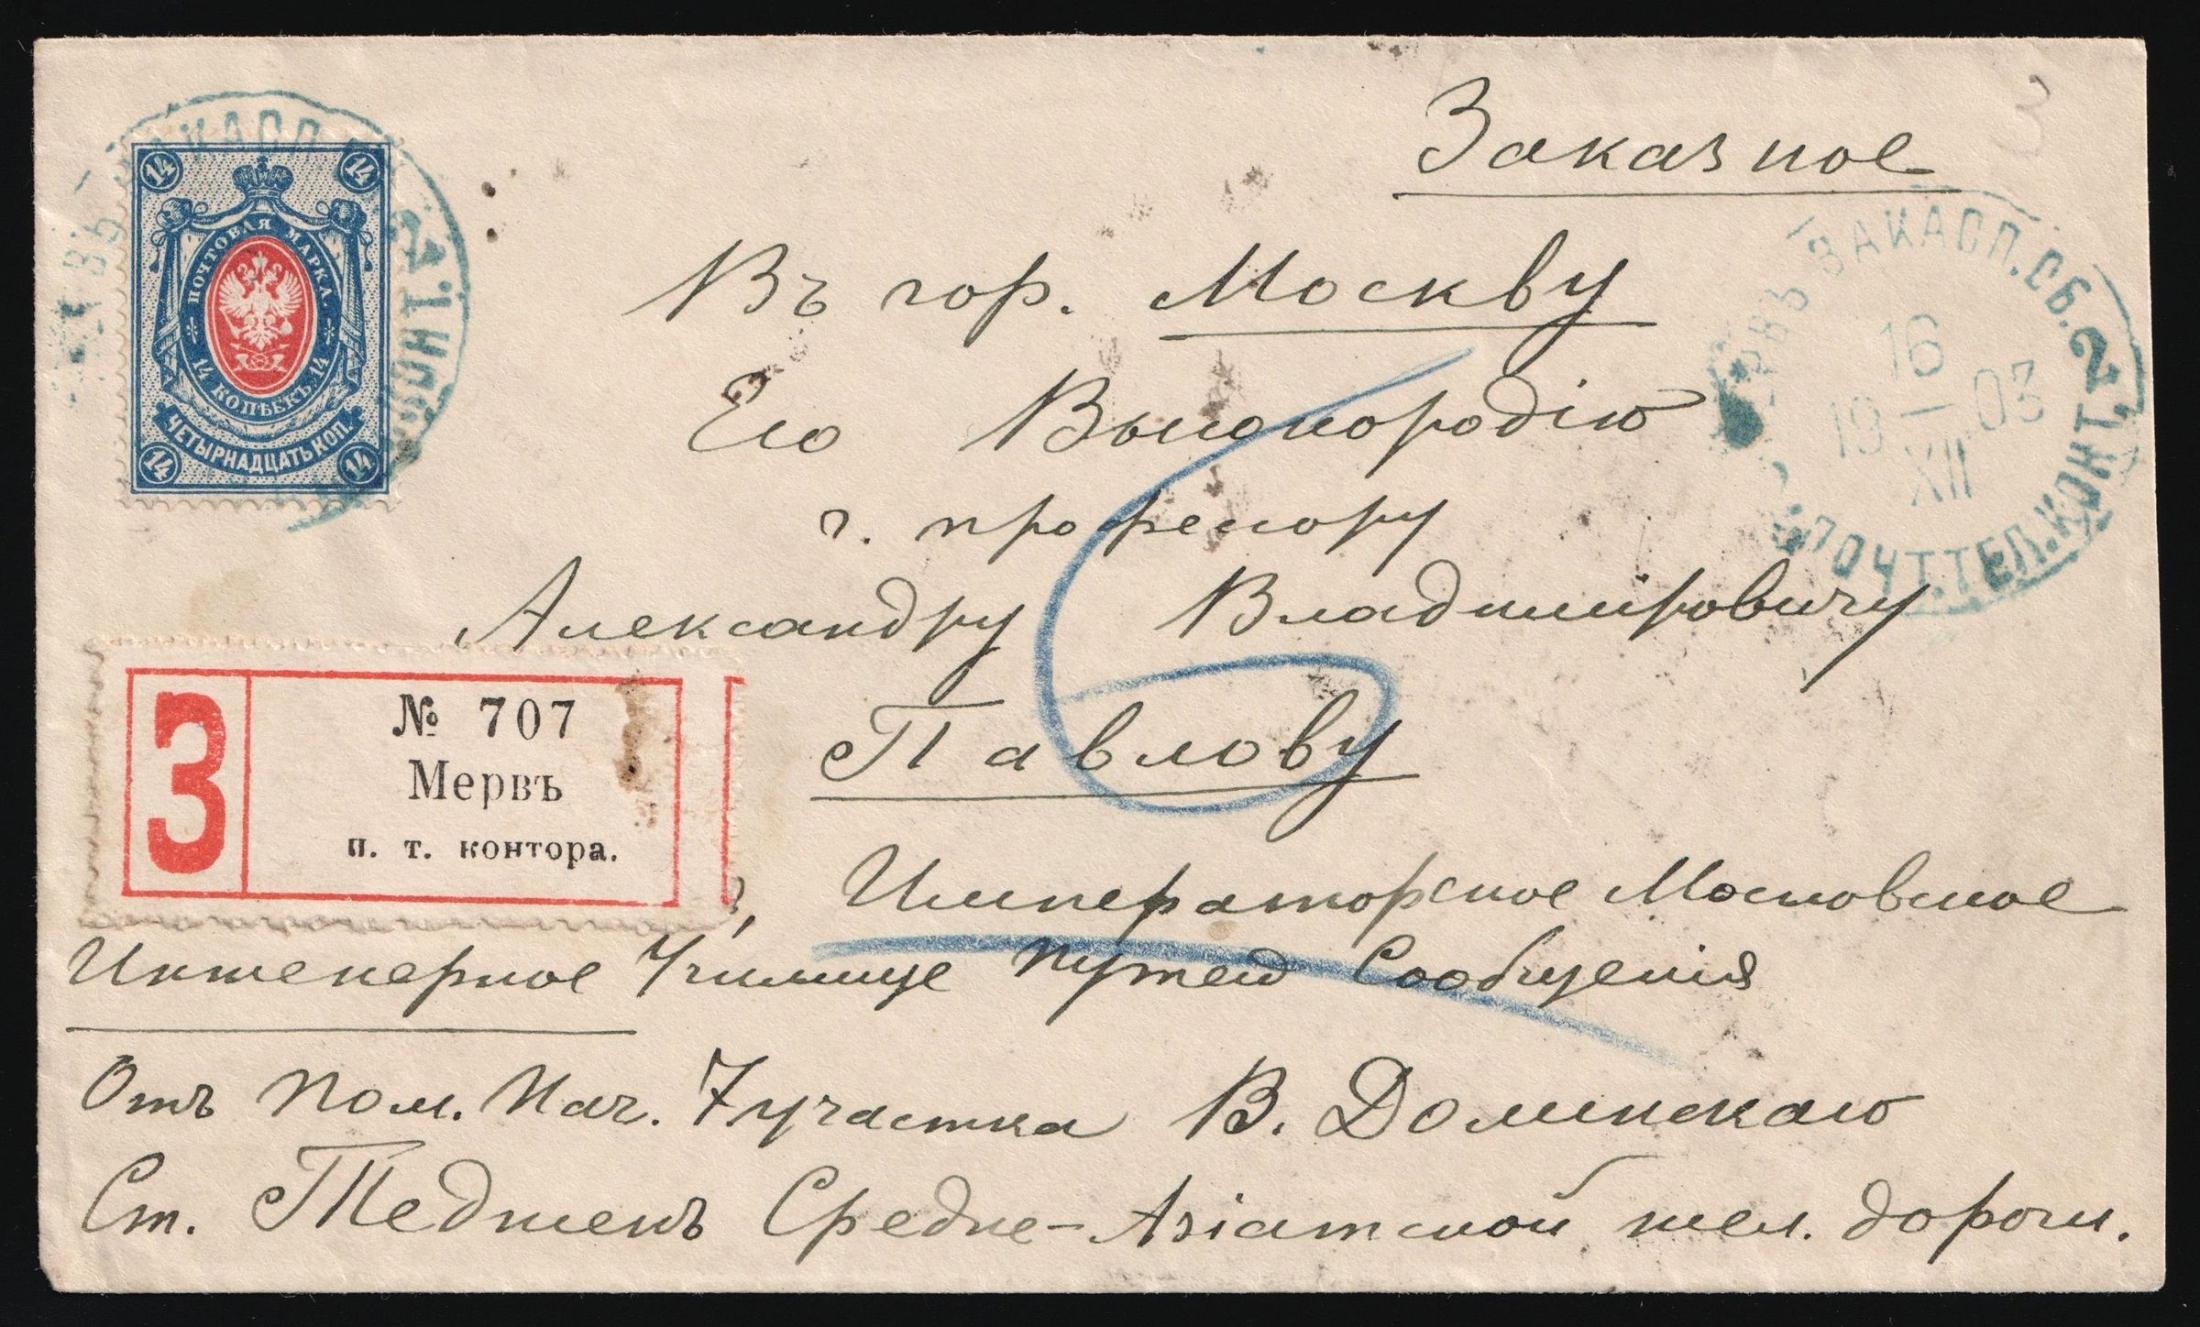 Заказное
14 14
ПОЧТОВАЯ МАРКА
14 КОПѢЕКЪ 14
ЧЕТЫРНАДЦАТЬ КОП.
14 14
ЗАКАСП. 2 КОНТ.
МЕРВЪ ЗАКАСП. ОБ. 2
16
19 — 03
XII
ПОЧТ. ТЕЛ. КОНТ.
3
Въ гор. Москву
Его Высокородію
г. професору
Александру Владиміровичу
Павлову
6
З
№ 707
Мервъ
п. т. контора.
Императорское Московское
Инженерное Училище Путей Сообщенія
Отъ Пом. Нач. 7 участка В. Долинскаго
Ст. Тедженъ Средне-Азіатской жел. дороги.